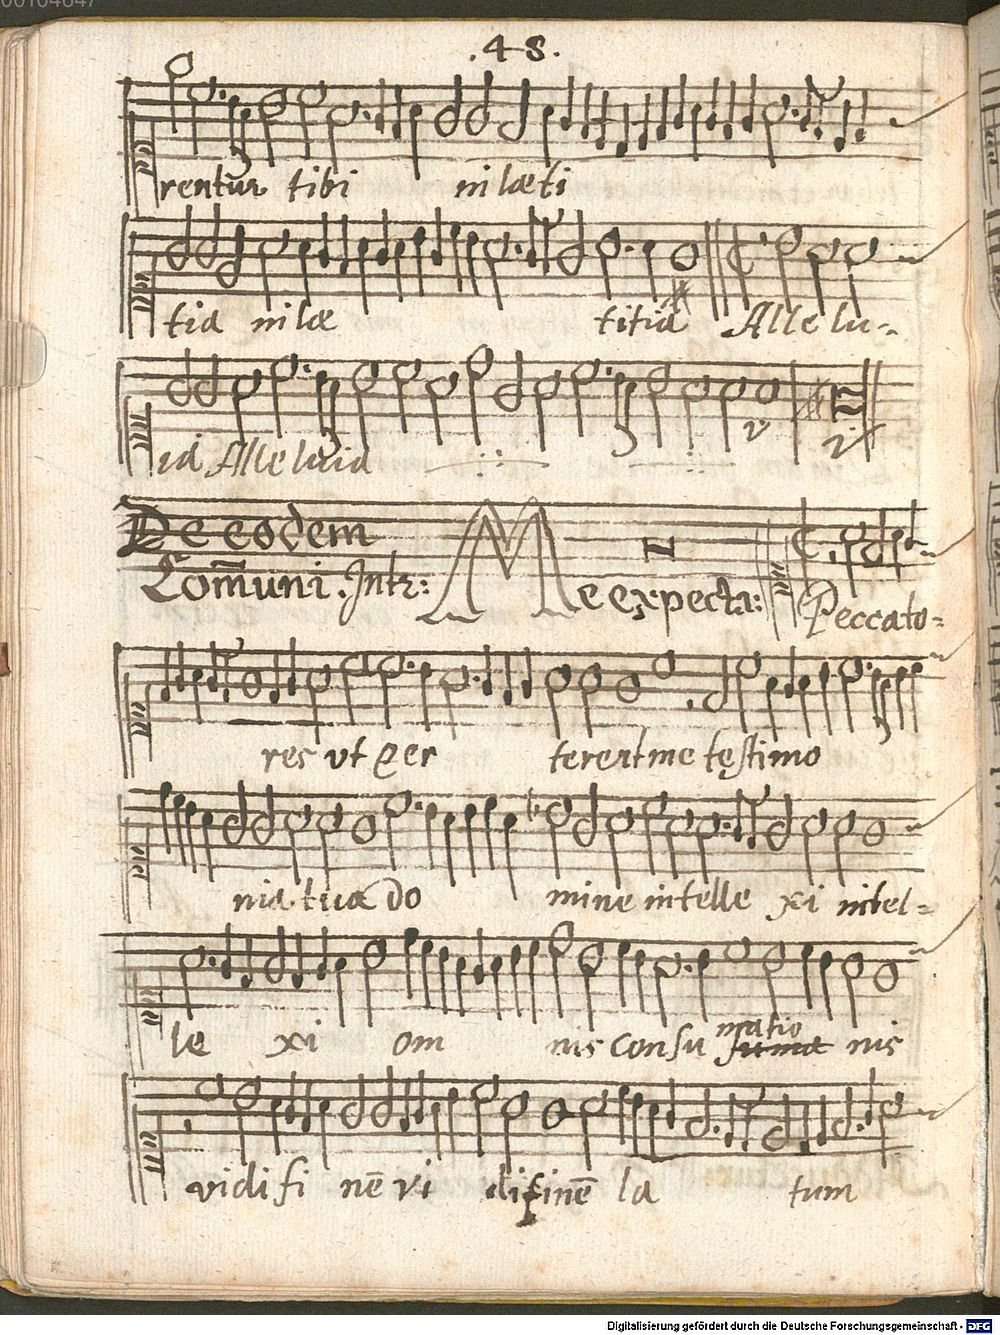 .48.
rentur tibi in læti
tia in læ titia Alle lu-
ia Alleluia
De eodem
Com̄uni. Intr: Me expecta: Peccato=
res vt per terent me testimo
nia tua do mine intelle xi intel=
le xi om nis consu matio nis
vidi fi nē vi di finē la tum
Digitalisierung gefördert durch die Deutsche Forschungsgemeinschaft - DFG